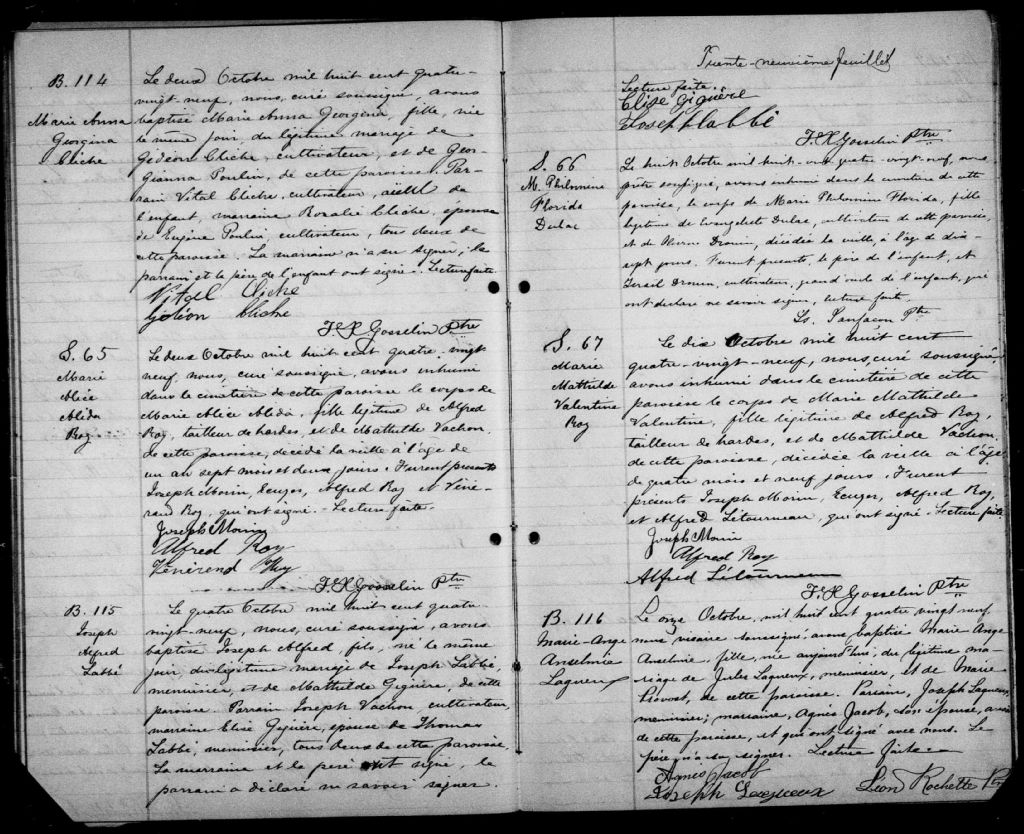 B. 114
Marie Anna
Georgina
Cliche
Le deux Octobre mil huit cent quatre-
vingt-neuf, nous, curé soussigné, avons
baptisé Marie Anna Georgina, fille, née
le même jour, du légitime mariage de
Gédéon Cliche, cultivateur, et de Geor-
gianna Poulin, de cette paroisse. Par-
rain Vital Cliche, cultivateur, aïeul de
l'enfant, marraine Rosalie Cliche, épouse
de Eugène Poulin, cultivateur, tous deux de
cette paroisse. La marraine n'a su signer, le
parrain et le père de l'enfant ont signé. Lecture faite.
Vital Cliche
Gédéon Cliche
F. X. Gosselin Ptre
S. 65
Marie
Alice
Alida
Roy
Le deux Octobre mil huit cent quatre-vingt
neuf, nous, curé soussigné, avons inhumé
dans le cimetière de cette paroisse le corps de
Marie Alice Alida, fille légitime de Alfred
Roy, tailleur de hardes, et de Mathilde Vachon,
de cette paroisse, décédé la veille à l'âge de
un an sept mois et deux jours. Furent présents
Joseph Morin, Alfred Roy et Véné-
rend Roy, qui ont signé. Lecture faite.
Joseph Morin
Alfred Roy
Vénérend Roy
F. X. Gosselin Ptre
B. 115
Joseph
Alfred
Labbé
Le quatre Octobre mil huit cent quatre
vingt-neuf, nous, curé soussigné, avons
baptisé Joseph Alfred, fils, né le même
jour, du légitime mariage de Joseph Labbé,
menuisier, et de Mathilde Giguère, de cette
paroisse. Parrain Joseph Vachon, cultivateur,
marraine Elise Giguère, épouse de Thomas
Labbé, menuisier, tous deux de cette paroisse.
La marraine et le père ont signé, le
parrain a déclaré ne savoir signer.
Trente-neuvième feuillet
Lecture faite.
Elise Giguère
Joseph Labbé
F. X. Gosselin Ptre
S. 66
M. Philomène
Florida
Dulac
Le huit Octobre mil huit-cent quatre-vingt-neuf, nous
prêtre soussigné, avons inhumé dans le cimetière de cette
paroisse, le corps de Marie Philomène Florida, fille
légitime de Evangeliste Dulac, cultivateur de cette paroisse,
et de Drouin, décédée la veille, à l'âge de dix-
sept jours. Furent présents, le père de l'enfant, et
Drouin, cultivateur, grand oncle de l'enfant, qui
ont déclaré ne savoir signer, lecture faite.
Ls. Sanfaçon Ptre
S. 67
Marie
Mathilde
Valentine
Roy
Le dix Octobre mil huit cent
quatre-vingt-neuf, nous, curé soussigné
avons inhumé dans le cimetière de cette
paroisse le corps de Marie Mathilde
Valentine, fille légitime de Alfred Roy,
tailleur de hardes, et de Mathilde Vachon,
de cette paroisse, décédée la veille à l'âge
de quatre mois et neuf jours. Furent
présents Joseph Morin, Alfred Roy,
et Alfred Létourneau, qui ont signé. Lecture faite.
Joseph Morin
Alfred Roy
Alfred Létourneau
F. X. Gosselin Ptre
B. 116
Marie-Ange
Anselmie
Lagueux
Le onze Octobre, mil huit cent quatre vingt neuf,
nous, vicaire soussigné, avons baptisé Marie Ange
Anselmie, fille, née aujourd'hui, du légitime ma-
riage de Jules Lagueux, menuisier, et de Marie
Provost, de cette paroisse. Parrain, Joseph Lagueux,
menuisier; marraine, Agnès Jacob, son épouse, aussi
de cette paroisse, et qui ont signé avec nous. Le
père n'a su signer. Lecture faite
Agnès Jacob
Joseph Lagueux
Léon Rochette Ptre